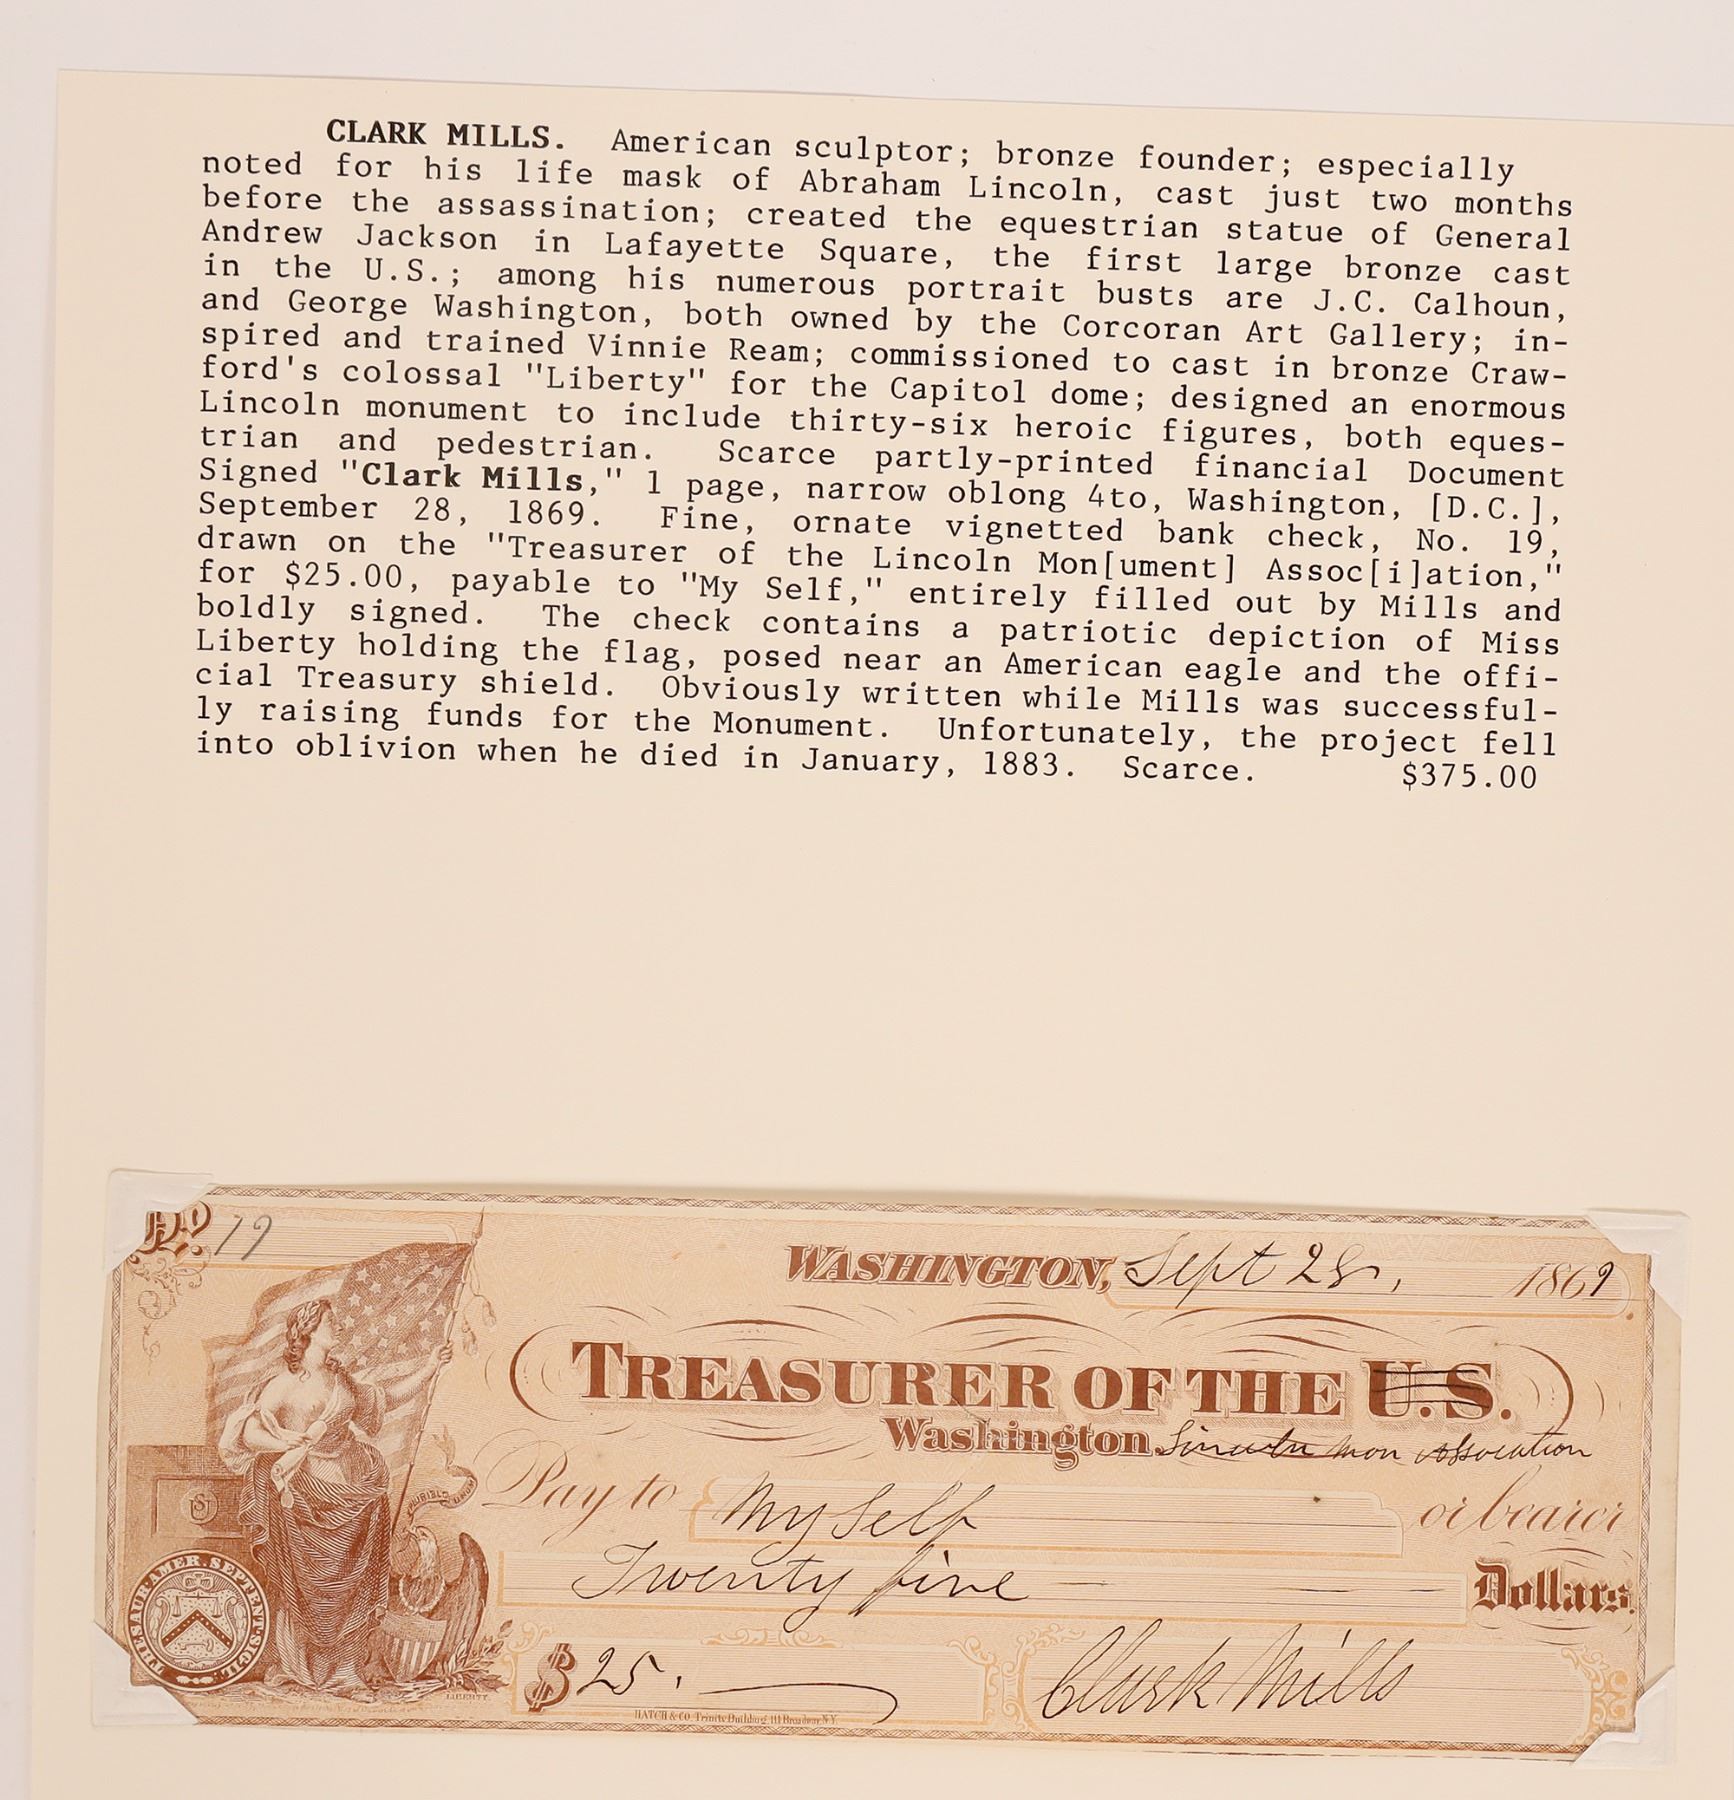 CLARK MILLS. American sculptor; bronze founder; especially
noted for his life mask of Abraham Lincoln, cast just two months
before the assassination; created the equestrian statue of General
Andrew Jackson in Lafayette Square, the first large bronze cast
in the U.S.; among his numerous portrait busts are J.C. Calhoun,
and George Washington, both owned by the Corcoran Art Gallery; in-
spired and trained Vinnie Ream; commissioned to cast in bronze Craw-
ford's colossal "Liberty" for the Capitol dome; designed an enormous
Lincoln monument to include thirty-six heroic figures, both eques-
trian and pedestrian. Scarce partly-printed financial Document
Signed "Clark Mills," 1 page, narrow oblong 4to, Washington, [D.C.],
September 28, 1869. Fine, ornate vignetted bank check, No. 19,
drawn on the "Treasurer of the Lincoln Mon[ument] Assoc[i]ation,"
for $25.00, payable to "My Self," entirely filled out by Mills and
boldly signed. The check contains a patriotic depiction of Miss
Liberty holding the flag, posed near an American eagle and the offi-
cial Treasury shield. Obviously written while Mills was successful-
ly raising funds for the Monument. Unfortunately, the project fell
into oblivion when he died in January, 1883. Scarce. $375.00
No 19
WASHINGTON, Sept 28, 1869
TREASURER OF THE U.S.
Washington. Lincoln Mon Assocation
Pay to My Self or bearer
Twenty five Dollars.
$25. Clark Mills
US
E PLURIBUS UNUM
THESAUR. AMER. SEPTENT. SIGIL.
LIBERTY.
HATCH & CO. Trinity Building 111 Broadway N.Y.